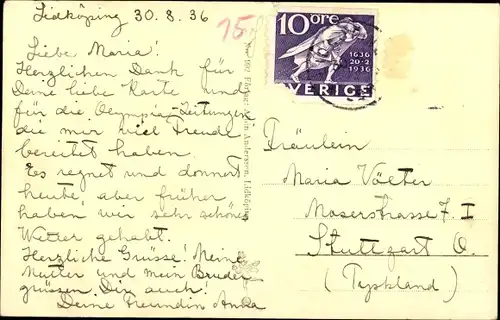 Lidköping 30.8.36
15
Liebe Maria!
Herzlichen Dank für
Deine liebe Karte und
für die Olympia-Zeitungen
die mir viel Freude
bereitet haben.
Es regnet und donnert
heute, aber früher
haben wir sehr schönes
Wetter gehabt.
Herzliche Grüsse! Meine
Mutter und mein Bruder
grüssen Dich auch!
Deine Freundin Anna
10 ÖRE
1636
20-2
1936
SVERIGE
Andersson, Lidköping
Fräulein
Maria Völter
Moserstrasse 7 I
Stuttgart O.
(Tyskland)